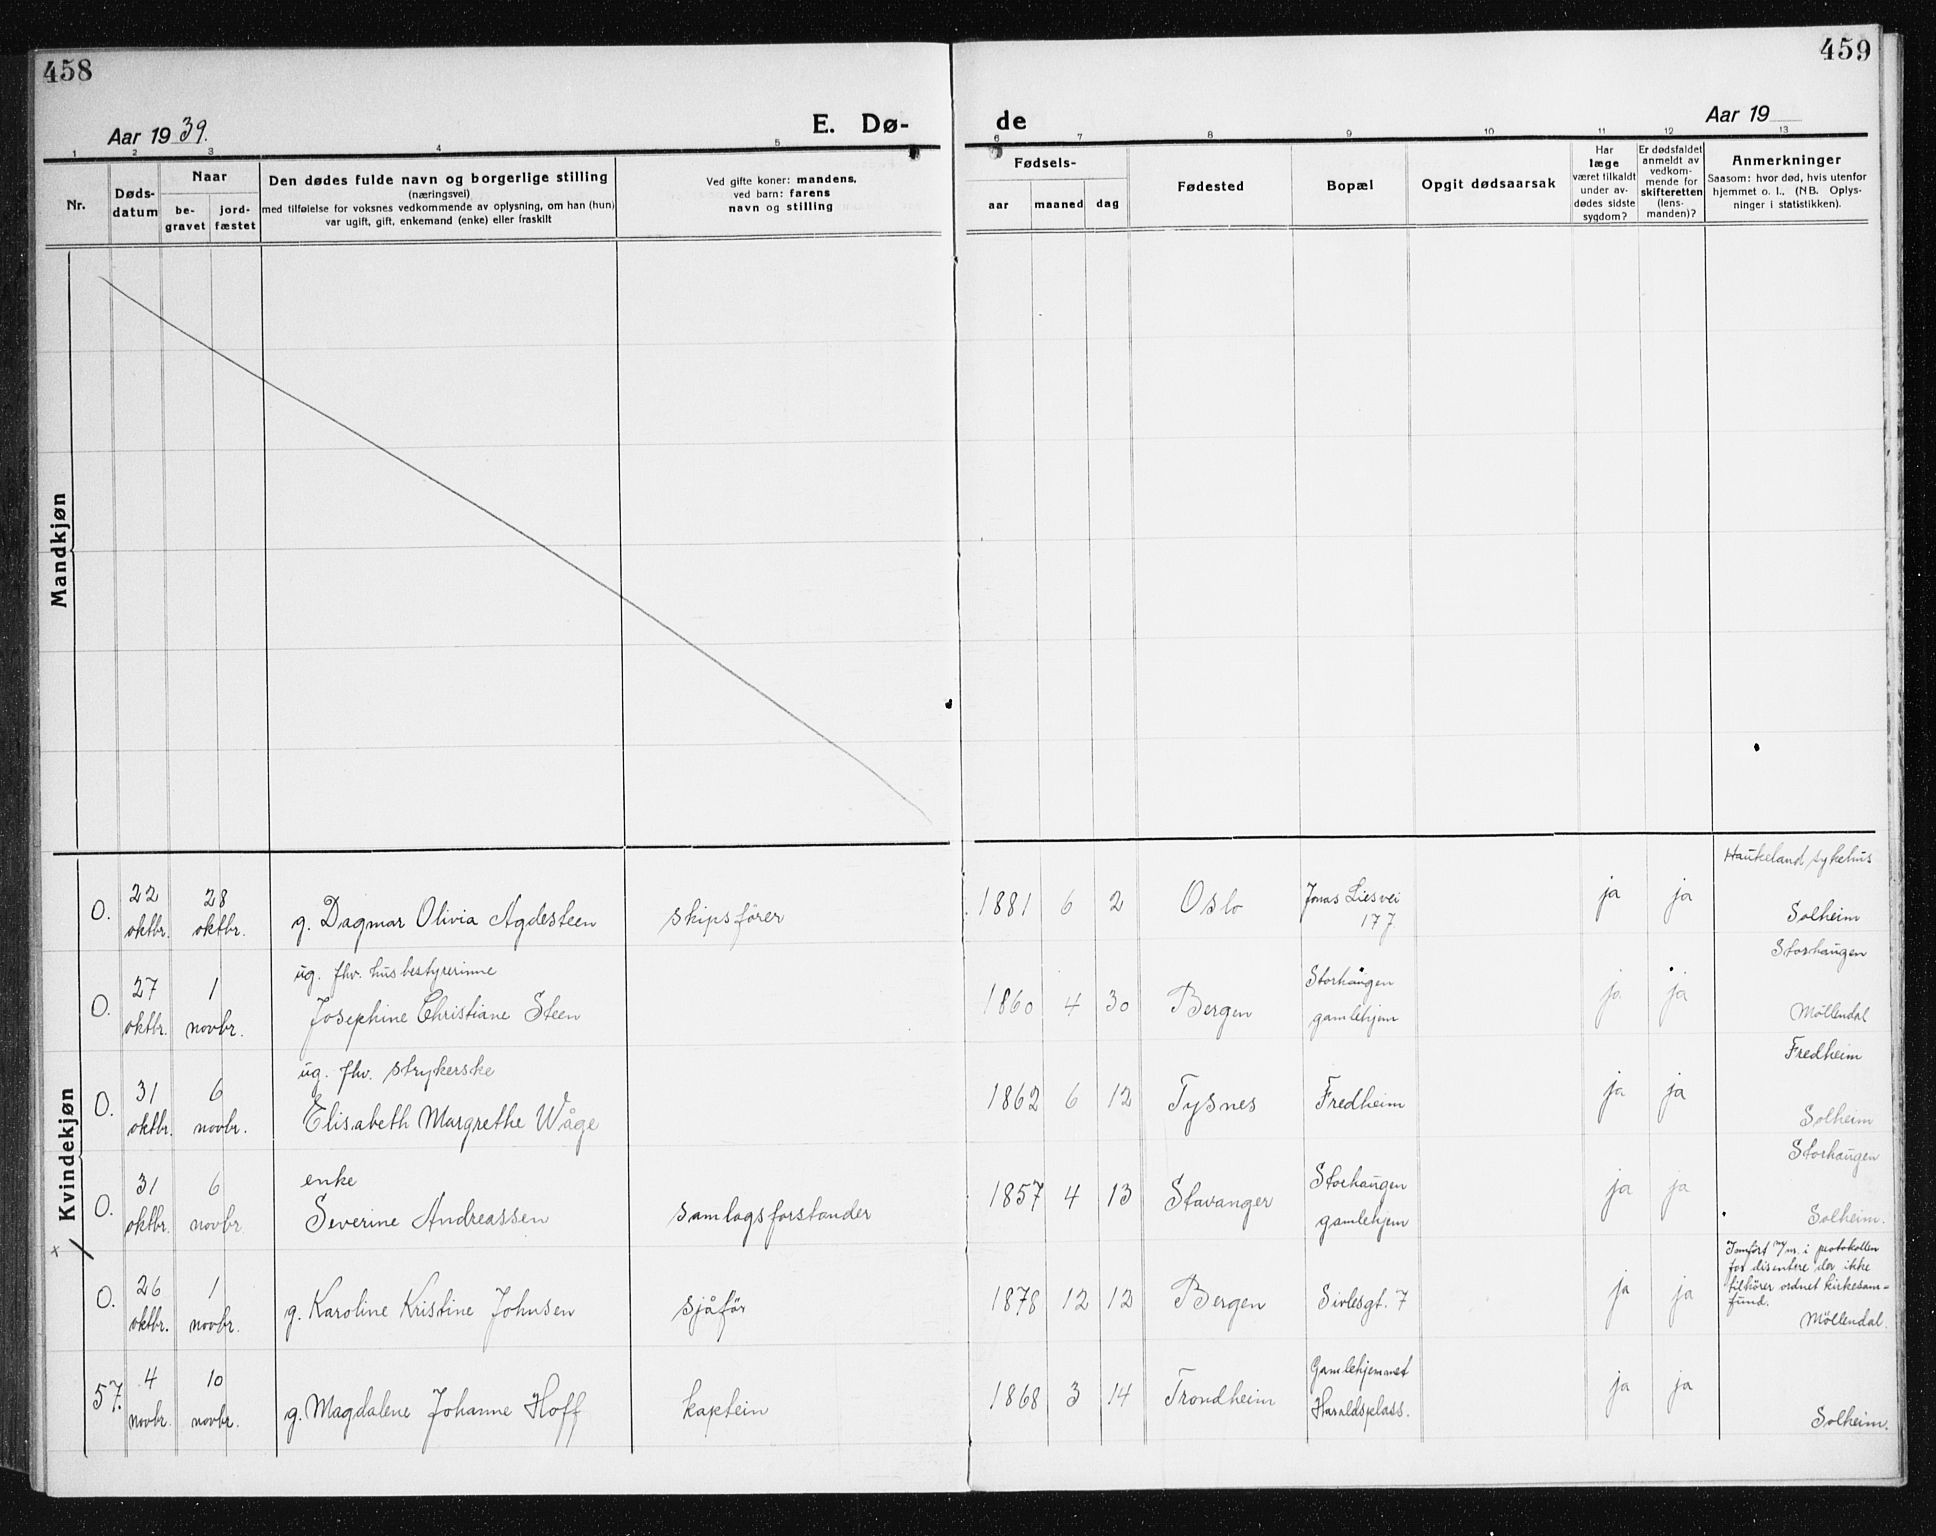 458
459
Aar 1939.
E. Dø-
de
Aar 19
1 2 3 4 5 6 7 8 9 10 11 12 13
Nr.
Døds-
datum
Naar
be-
gravet
jord-
fæstet
Den dødes fulde navn og borgerlige stilling
(næringsvei)
med tilføielse for voksnes vedkommende av oplysning, om han (hun)
var ugift, gift, enkemand (enke) eller fraskilt
Ved gifte koner: mandens,
ved barn: farens
navn og stilling
Fødsels-
aar maaned dag
Fødested
Bopæl
Opgit dødsaarsak
Har
læge
været tilkaldt
under av-
dødes sidste
sygdom?
Er dødsfaldet
anmeldt av
vedkom-
mende for
skifteretten
(lens-
manden)?
Anmerkninger
Saasom: hvor død, hvis utenfor
hjemmet o. l., (NB. Oplys-
ninger i statistikken).
Mandkjøn
Kvindekjøn
Haukeland sykehus
0. 22 oktbr. 28 oktbr. g. Dagmar Olivia Agdesteen skipsförer 1881 6 2 Oslo Jonas Liesvei ja ja
177
Solheim
ug. fhv. husbestyrerinne Storhaugen
0. 27 oktbr. 1 novbr. Josephine Christiane Steen 1860 4 30 Bergen Storhaugen ja ja
gamlehjem
Möllendal
ug. fhv. strykerske Fredheim
0. 31 oktbr. 6 novbr. Elisabeth Margrethe Wåge 1862 6 12 Tysnes Fredheim ja ja
Solheim
enke Storhaugen
0. 31 oktbr. 6 novbr. Severine Andreassen samlagsforstander 1857 4 13 Stavanger Storhaugen ja ja
gamlehjem
Solheim.
x /
0. 26 oktbr. 1 novbr. g. Karoline Kristine Johnsen sjåför 1878 12 12 Bergen Sivlesgt. 7 ja ja
i protokollen
for disentere der ikke
tilhörer ordnet kirkesam-
fund.
Möllendal.
57. 4 novbr. 10 novbr. g. Magdalene Johanne Hoff kaptein 1868 3 14 Trondheim Gamlehjemmet ja ja
Haraldsplass.
Solheim.